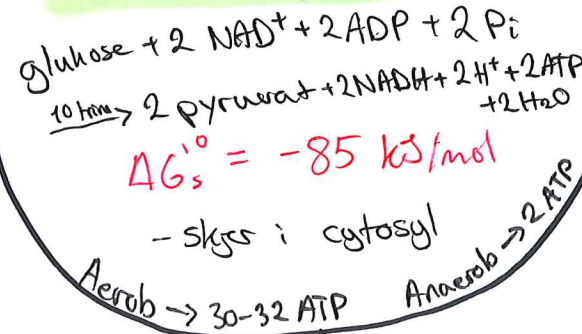 glukose + 2 NAD⁺ + 2 ADP + 2 Pi
10 trinn → 2 pyruvat + 2NADH + 2H⁺ + 2ATP
+ 2H₂O
ΔG'°ₛ = -85 kJ/mol
- skjer i cytosyl
Aerob → 30-32 ATP
Anaerob → 2 ATP